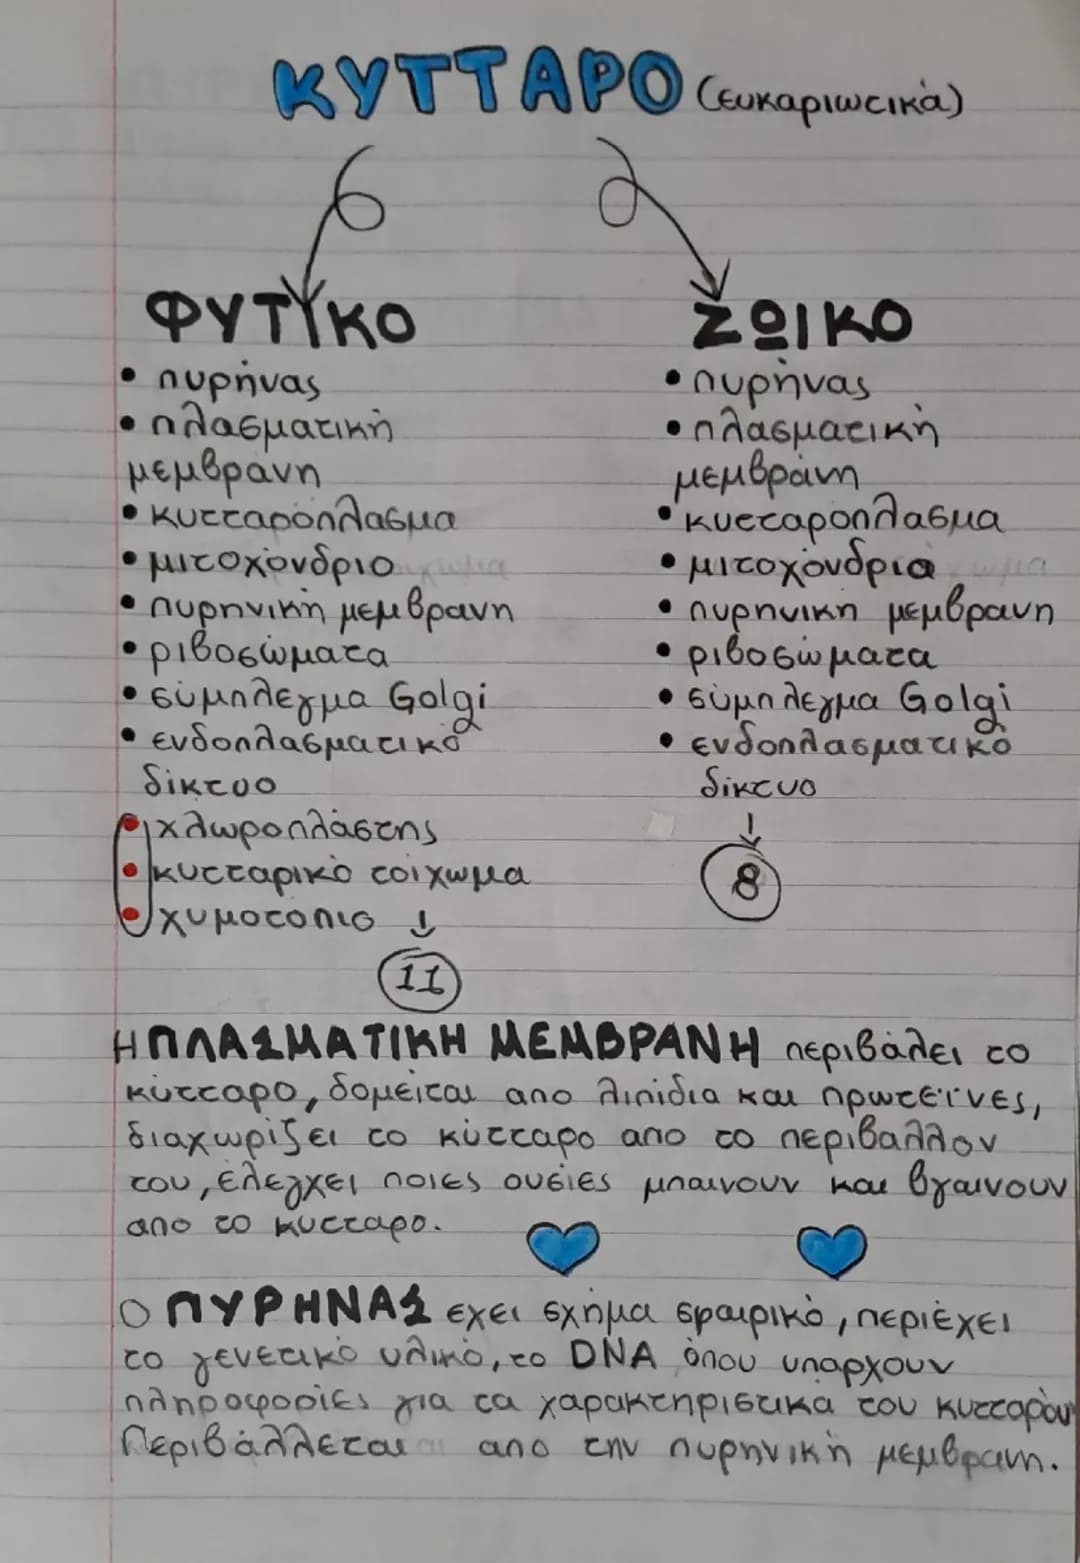 ΚΥΤΤΑΡΟ (ευκαριωτικά)
ΦΥΤΥΚΟ
• πυρήνας
• πλασματική
μεμβρανη
• κυτταρόπλασμα
• μιτοχόνδριο
• πυρηνική μεμβρανη
• ριβοσώματα
• σύμπλεγμα Golgi
• ενδοπλασματικό
δίκτυο
• χλωροπλάστης
• κυτταρικό τοίχωμα
• χυμοτοπιο ↓
11
ΖΩΙΚΟ
• πυρήνας
• πλασματική
μεμβράνη
• κυτταροπλασμα
• μιτοχόνδρια
• πυρηνικη μεμβρανη
• ριβοσώματα
• σύμπλεγμα Golgi
• ενδοπλασματικό
δίκτυο
↓
8
Η ΠΛΑΣΜΑΤΙΚΗ ΜΕΜΒΡΑΝΗ περιβάλει το
κύτταρο, δομείται απο λιπίδια και πρωτεϊνες,
διαχωρίζει το κύτταρο απο το περιβαλλον
του, έλεγχει ποιες ουσίες μπαινουν και βγαινουν
απο το κυτταρο.
Ο ΠΥΡΗΝΑΣ εχει σχήμα σφαιρικό, περιέχει
το γενετικό υλικό, το DNA όπου υπαρχουν
πληροφορίες για τα χαρακτηριστικα του κυτταρου
Περιβάλλεται απο την πυρηνική μεμβρανη.